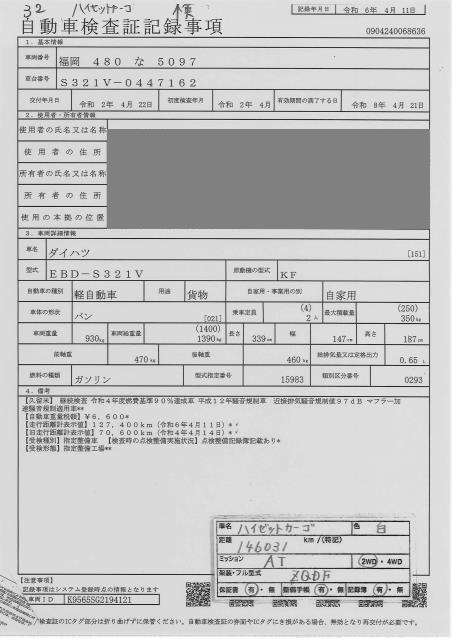 32 ハイゼットカーゴ
自動車検査証記録事項
記録年月日 令和 6年 4月 11日
0904240068636
1. 基本情報
車両番号 福岡 480 な 5097
車台番号 S321V-0447162
交付年月日 令和 2年 4月 22日 初度検査年月 令和 2年 4月 有効期間の満了する日 令和 8年 4月 21日
2. 使用者・所有者情報
使用者の氏名又は名称
使用者の住所
所有者の氏名又は名称
所有者の住所
使用の本拠の位置
3. 車両詳細情報
車名 ダイハツ [151]
型式 EBD-S321V 原動機の型式 KF
自動車の種別 軽自動車 用途 貨物 自家用・事業用の別 自家用
車体の形状 バン [021] 乗車定員 (4) 2人 最大積載量 (250) 350kg
車両重量 930kg 車両総重量 (1400) 1390kg 長さ 339cm 幅 147cm 高さ 187cm
前軸重 470kg 後軸重 460kg 総排気量又は定格出力 0.65 L
燃料の種類 ガソリン 型式指定番号 15983 類別区分番号 0293
4. 備考
【久留米】 継続検査 令和4年度燃費基準90%達成車 平成12年騒音規制車 近接排気騒音規制値97dB マフラー加
速騒音規制適用車**
【自動車重量税額】¥6,600*
【走行距離計表示値】127,400km(令和6年4月11日)*
【旧走行距離計表示値】70,600km(令和4年4月14日)*
【受検種別】指定整備車 【検査時の点検整備実施状況】点検整備記録簿記載あり*
【受検形態】指定整備工場**
車名 ハイゼットカーゴ 色 白
距離 146031 km /(特記)
ミッション AT 2WD・4WD
架装・フル型式 ZQDF
保証書 有・無 整備手帳 有・無 記録簿 有・無
【注意事項】
記録事項はシステム登録時点の情報となります
車両ID K9565SG2194121
検査証のICタグ部分は折り曲げずに保管ください。自動車検査証の券面やICタグにき損がある場合、無効となり再交付が必要です。